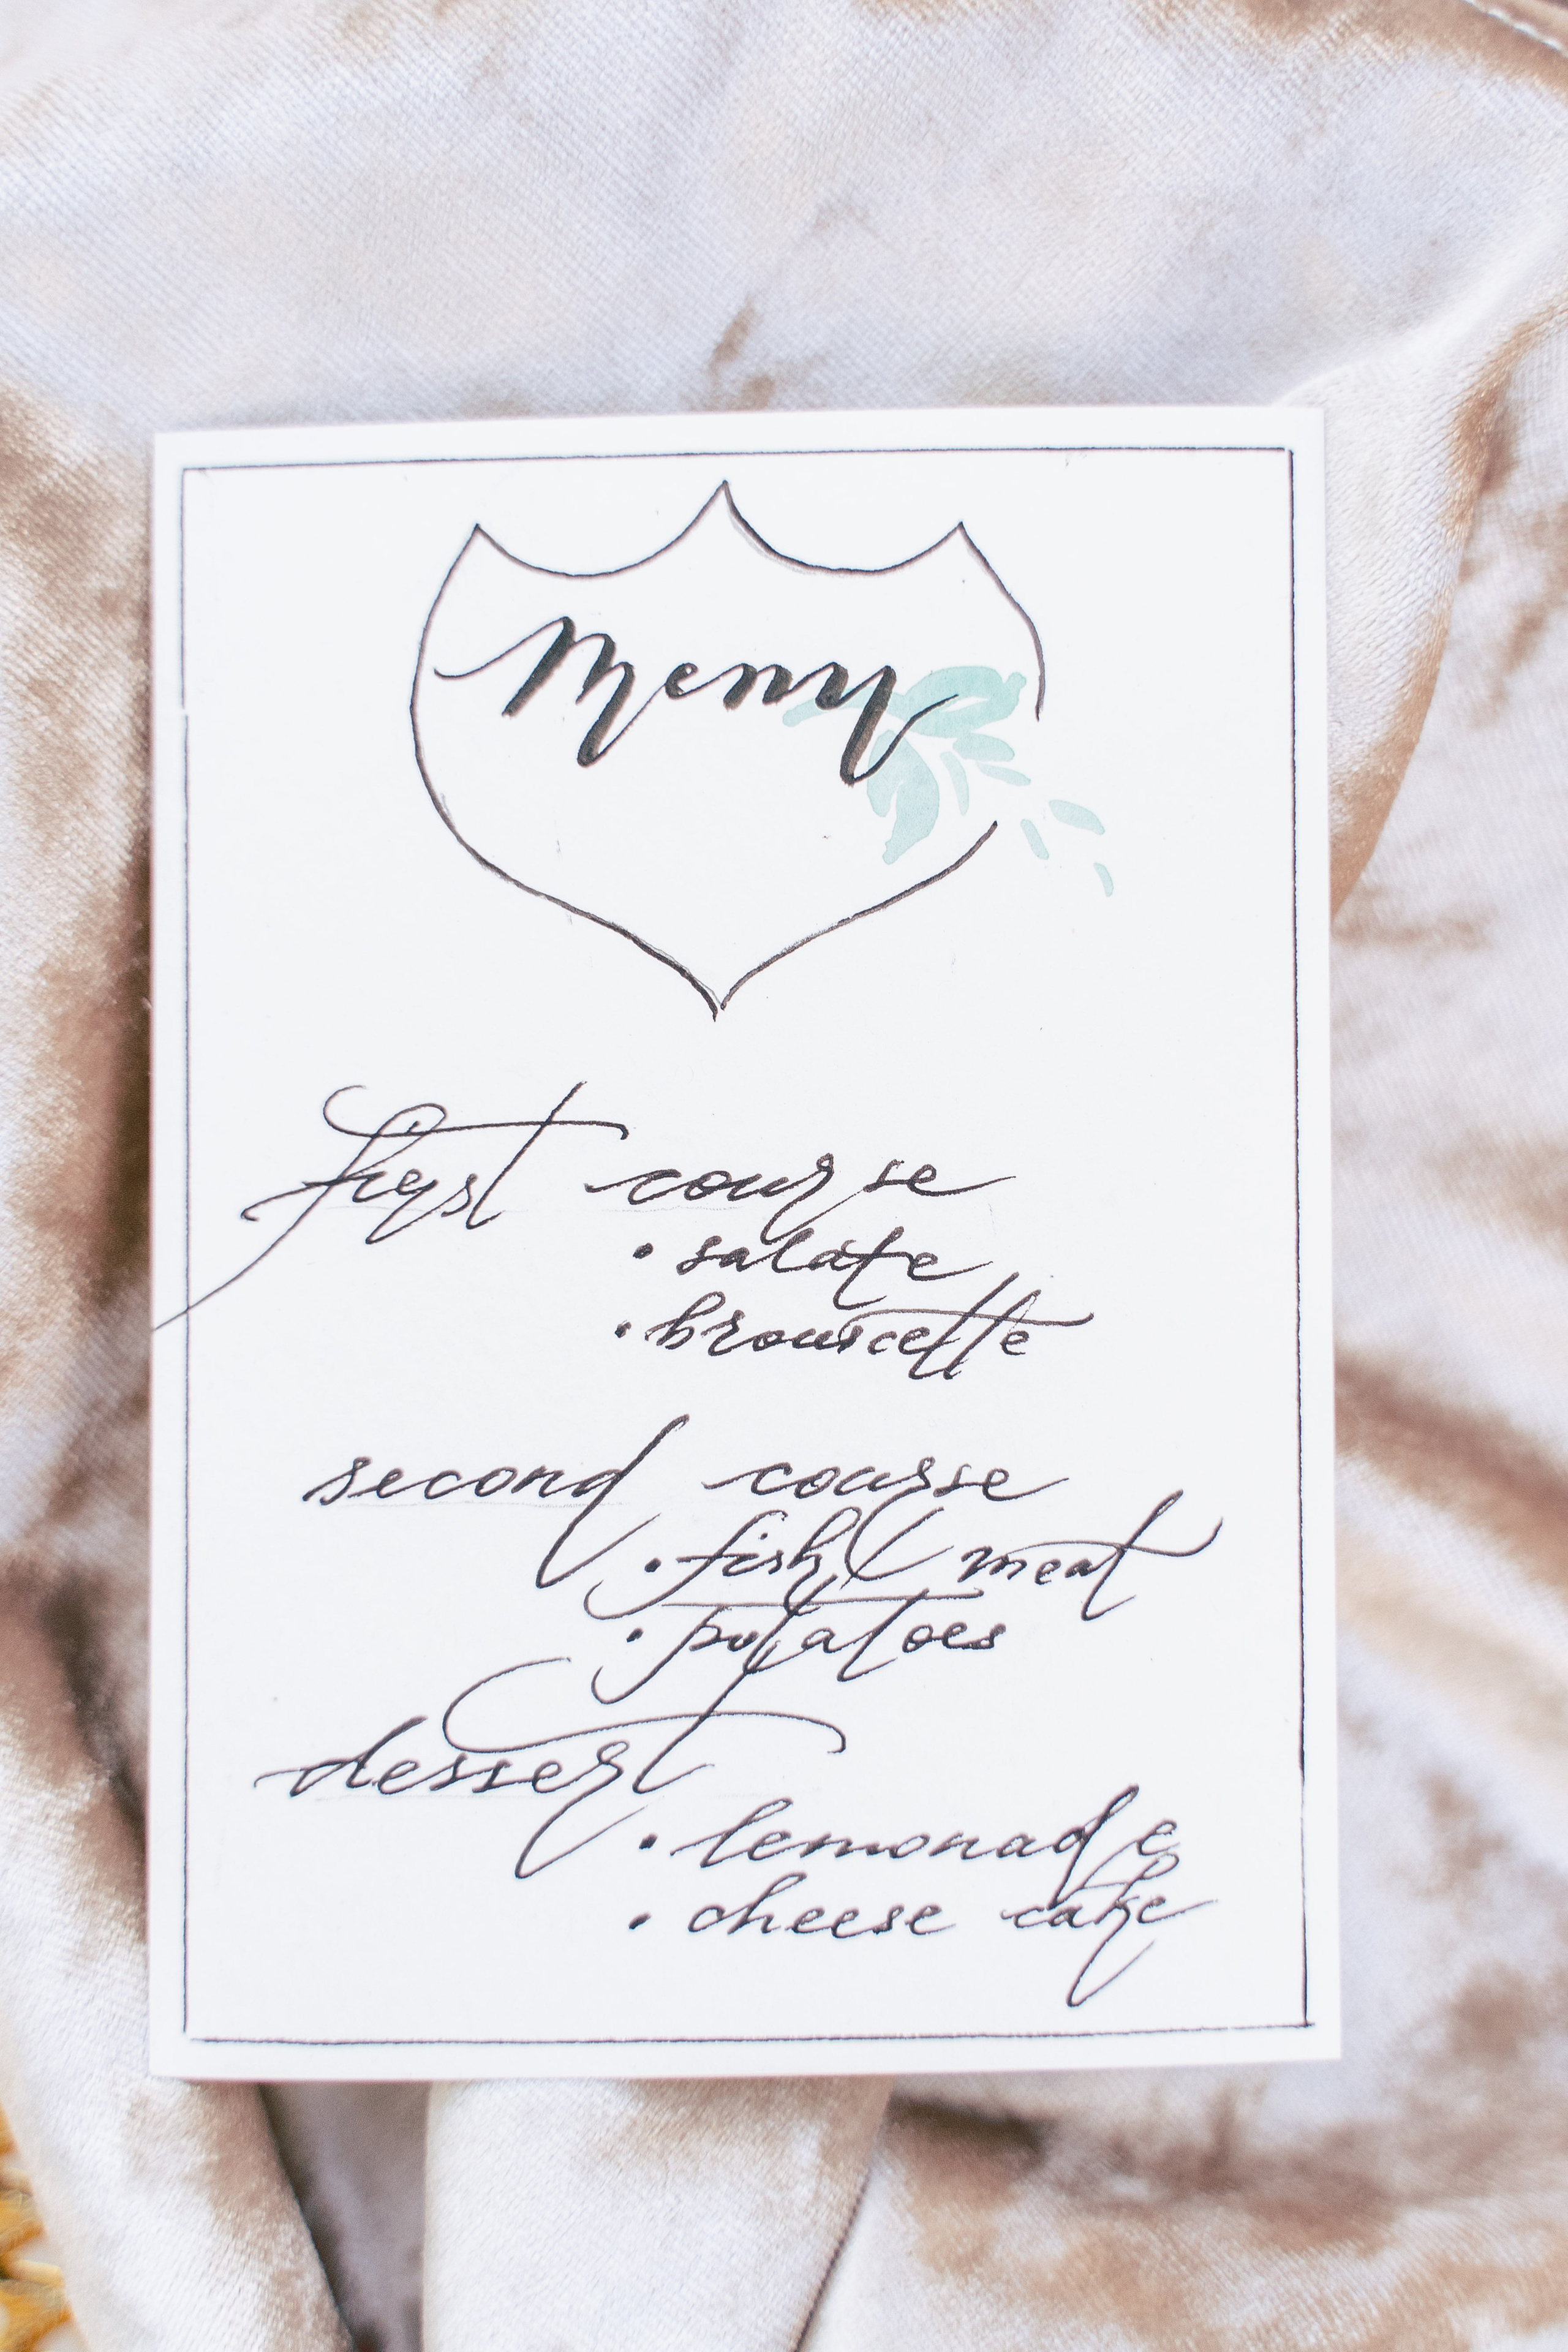 Meny
first course
• salate
• brouscette
second course
• fish & meat
• potatoes
dessert
• lemonade
• cheese cake